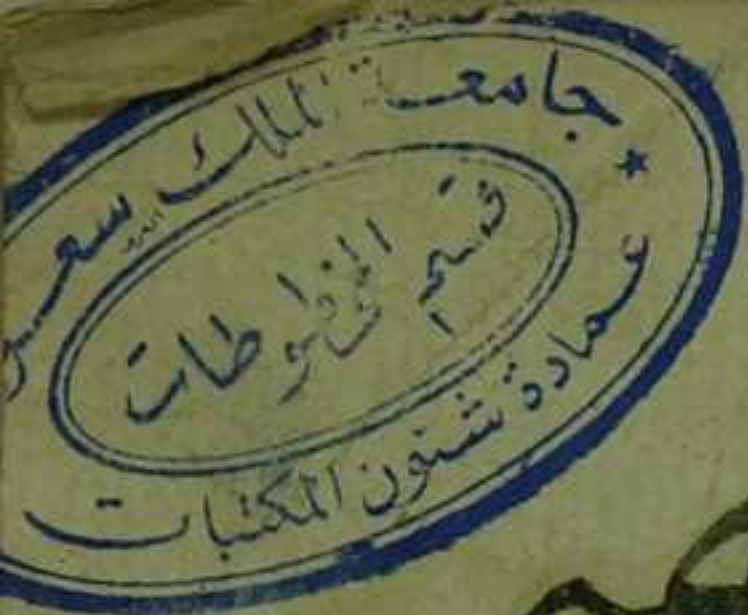 جامعة الملك سعو
قسم المخطوطات
عمادة شئون المكتبات